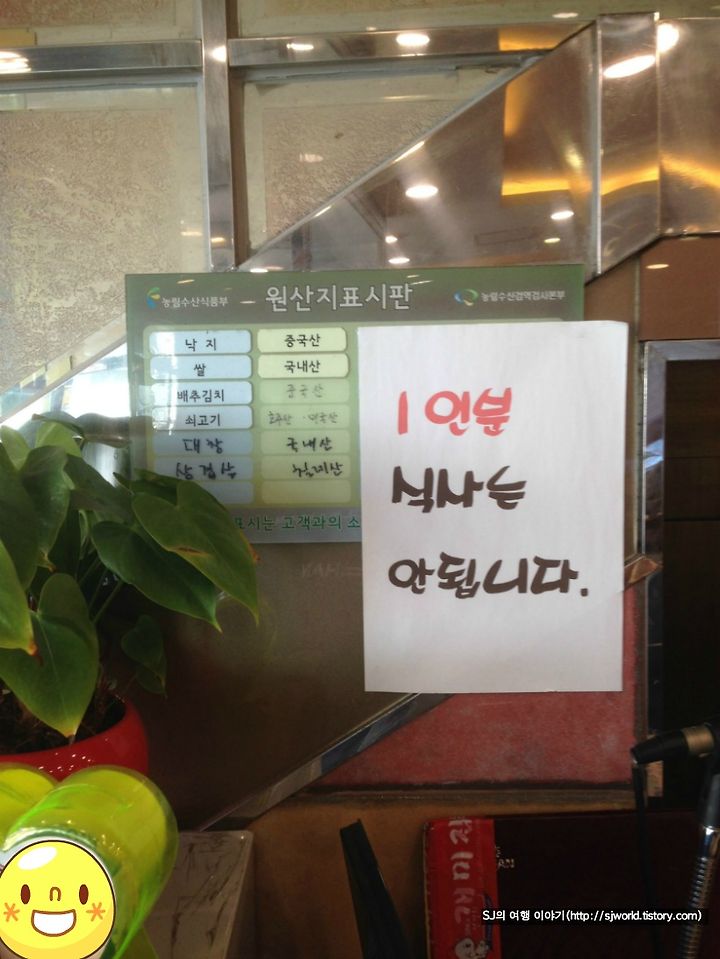 농림수산식품부 원산지표시판 농림수산검역검사본부
낙지 중국산
쌀 국내산
배추김치 중국산
쇠고기 호주산
대창 국내산
삼겹살 칠레산
표시는 고객과의
1인분
식사는
안됩니다.
SJ의 여행 이야기(http://sjworld.tistory.com)